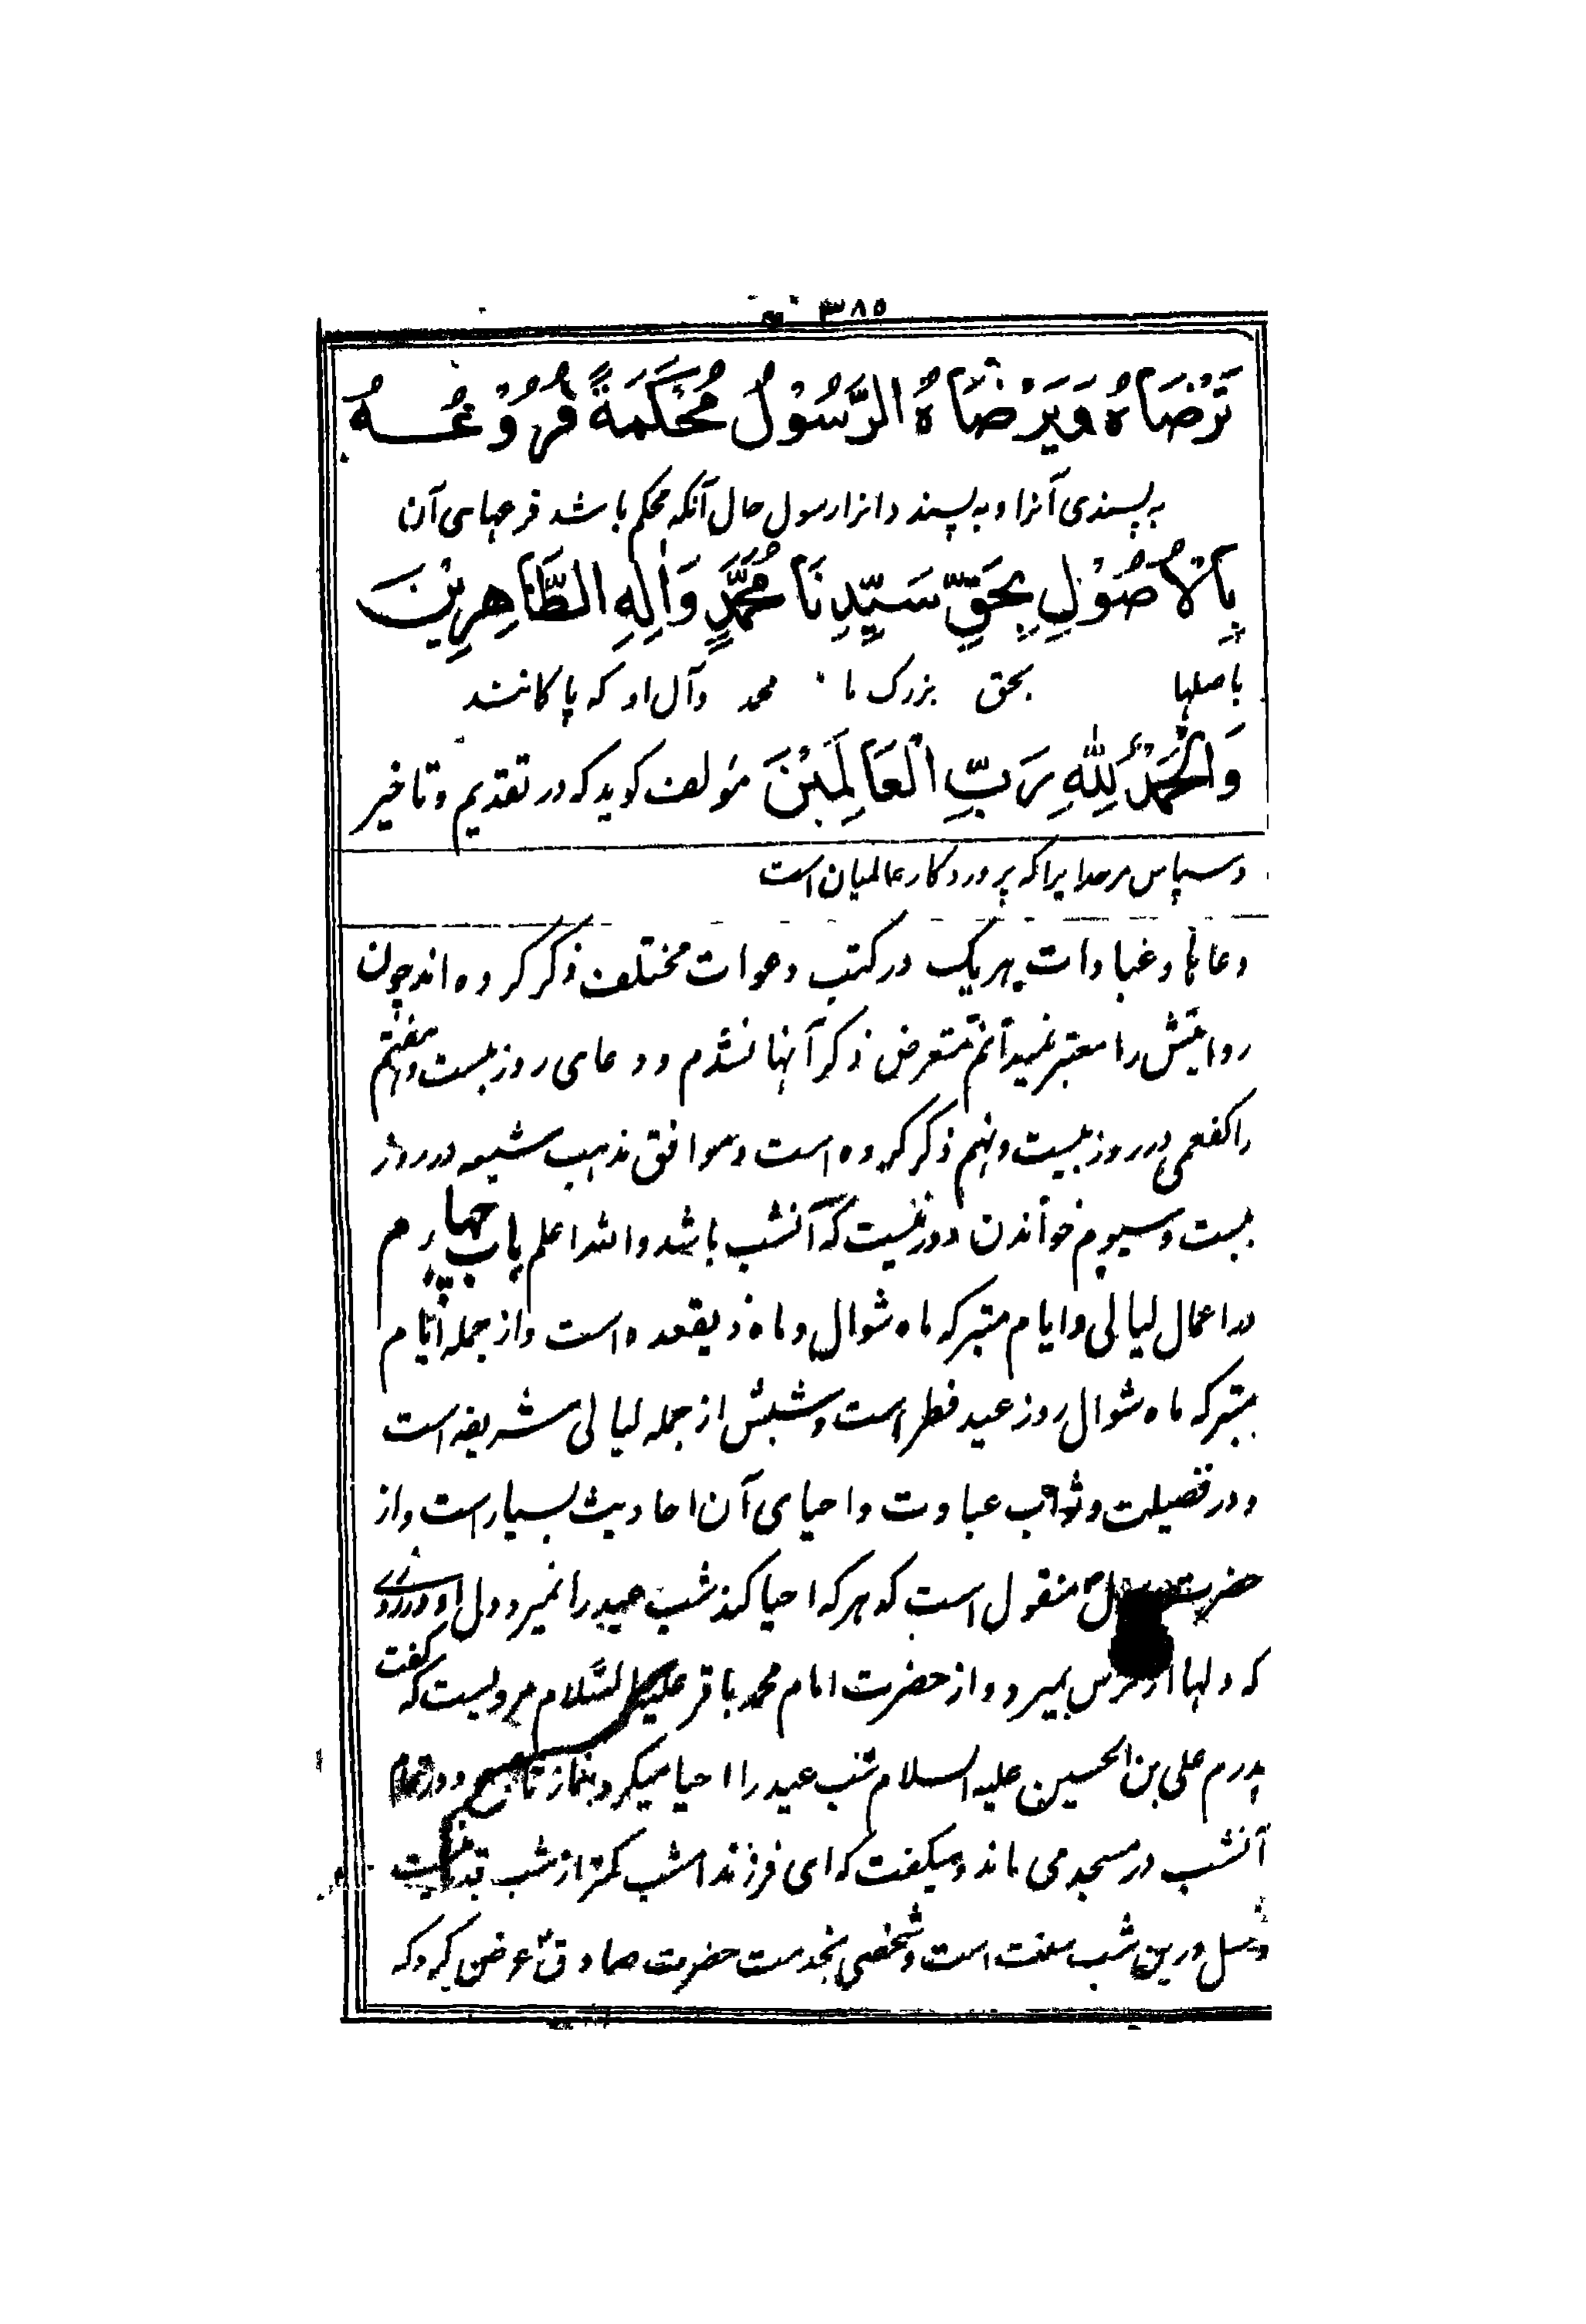 ۳۸۵
تَرْضَاهُ وَيَرْضَاهُ الرَّسُوْلُ مُحْكَمَةً فُرُوْعُهُ
به پسندی آنرا و به پسند دانرا رسول حال آنکه محکم باشد فرعهای آن
بِالْاُصُوْلِ بِحَقِّ سَيِّدِنَا مُحَمَّدٍ وَاٰلِهِ الطَّاهِرِيْنَ
باصلها بحق بزرک ما محمد وآل او که پاکانند
وَالْحَمْدُ لِلّٰهِ رَبِّ الْعَالَمِيْنَ مؤلف کوید که در تقدیم و تاخیر
و سپاس مر خدایرا که پروردکار عالمیان است
دعاها و عبادات هریک در کتب دعوات مختلف ذکر کرده اند چون
روایتش را معتبر نمیدانم متعرض ذکر آنها نشدم و دعای روز بیست و هفتم
را کفعمی در روز بیست و نهم ذکر کرده است و موافق مذهب شیعه در روز
بیست و سیوم خواندن دور نیست که آنشب باشد والله اعلم باب چهارم
در اعمال لیالی و ایام متبرکه ماه شوال و ماه ذیقعده است و از جمله ایام
متبرکه ماه شوال روز عید فطر است و شبش از جمله لیالی شریفه است
و در فضیلت و ثواب عبادت و احیای آن احادیث بسیار است و از
حضرت منقول است که هر که احیا کند شب عید را نمیرد دل او در روزی
که دلها از ترس بمیرد و از حضرت امام محمد باقر علیه السّلام مرویست که گفت
پدرم علی بن الحسین علیه السلام شب عید را احیا میکرد بنماز تا صبح و در تمام
آنشب در مسجد می ماند و میکفت که ای فرزند امشب کمتر از شب قدر نیست
و غسل درین شب سنت است و شخصی بخدمت حضرت صادقؑ عرض کرد که